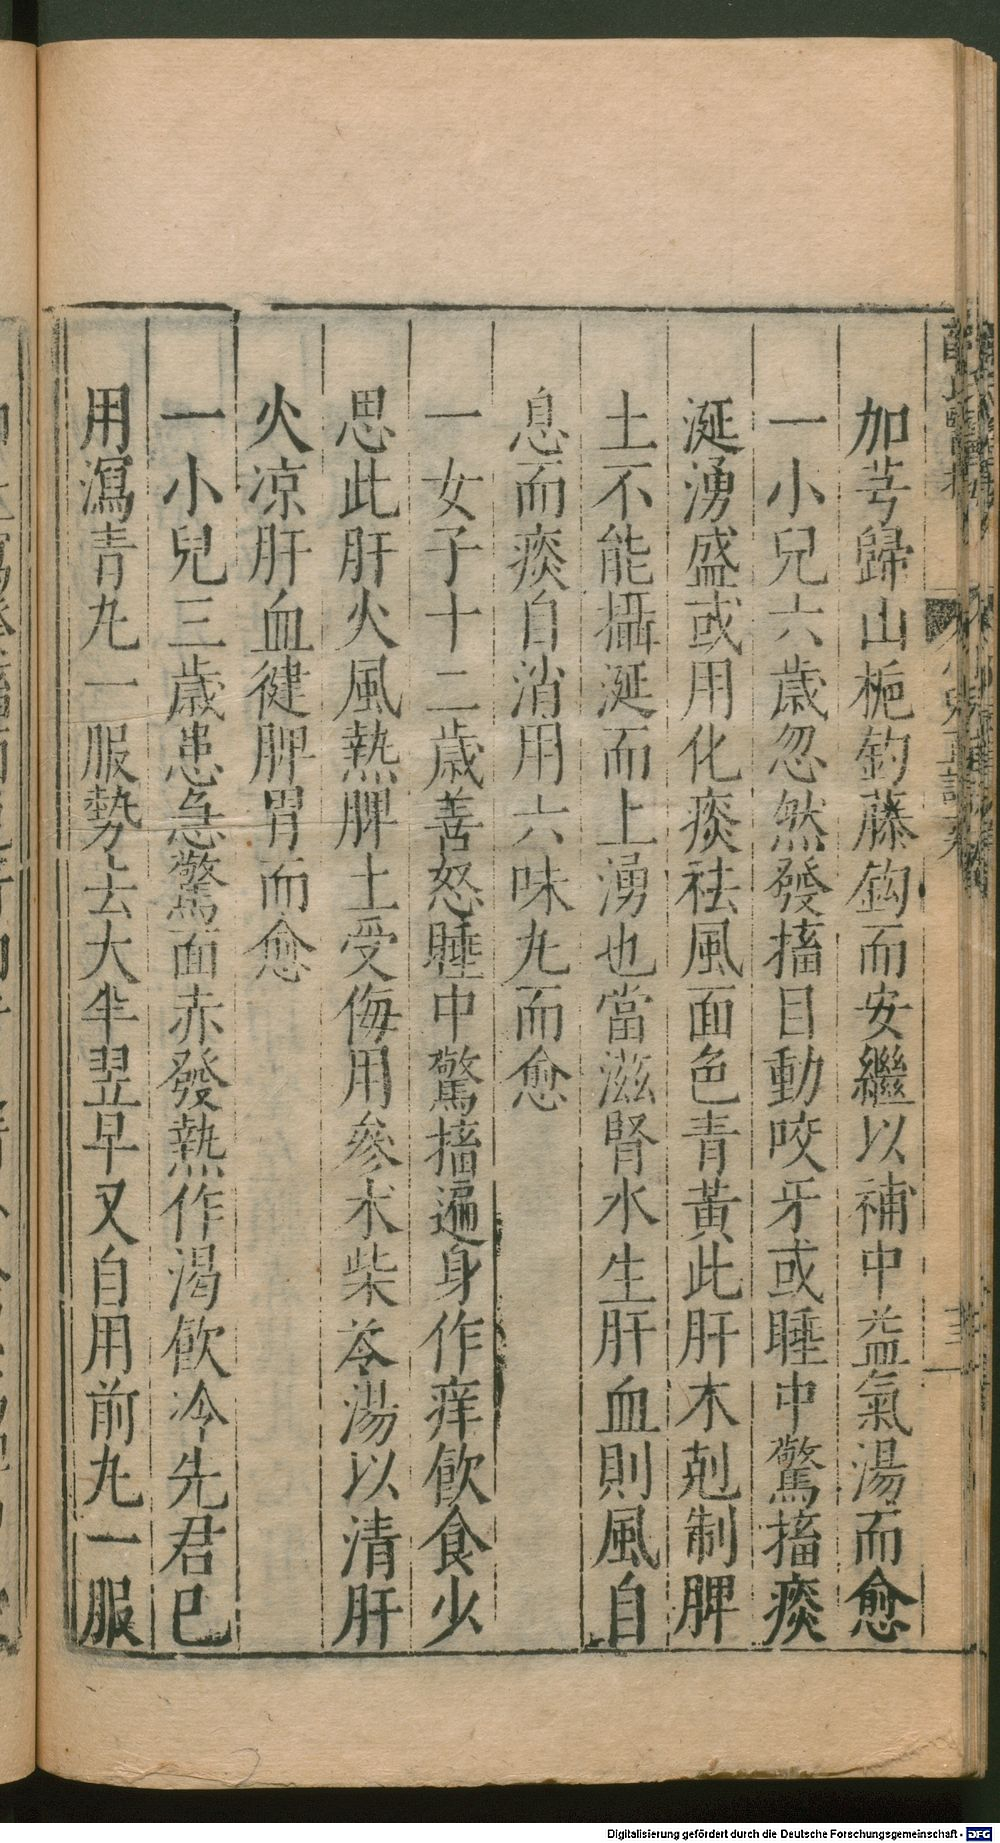 加芎歸山梔鈞藤鈎而安繼以補中益氣湯而愈
一小兒六歲忽然發搐目動咬牙或睡中驚搐痰
涎湧盛或用化痰祛風面色青黃此肝木剋制脾
土不能攝涎而上湧也當滋腎水生肝血則風自
息而痰自消用六味丸而愈
一女子十二歲善怒睡中驚搐遍身作痒飲食少
思此肝火風熱脾土受侮用參朮柴苓湯以清肝
火凉肝血健脾胃而愈
一小兒三歲患急驚面赤發熱作渴飲冷先君已
用瀉青丸一服勢去大半翌早又自用前丸一服
Digitalisierung gefördert durch die Deutsche Forschungsgemeinschaft - DFG